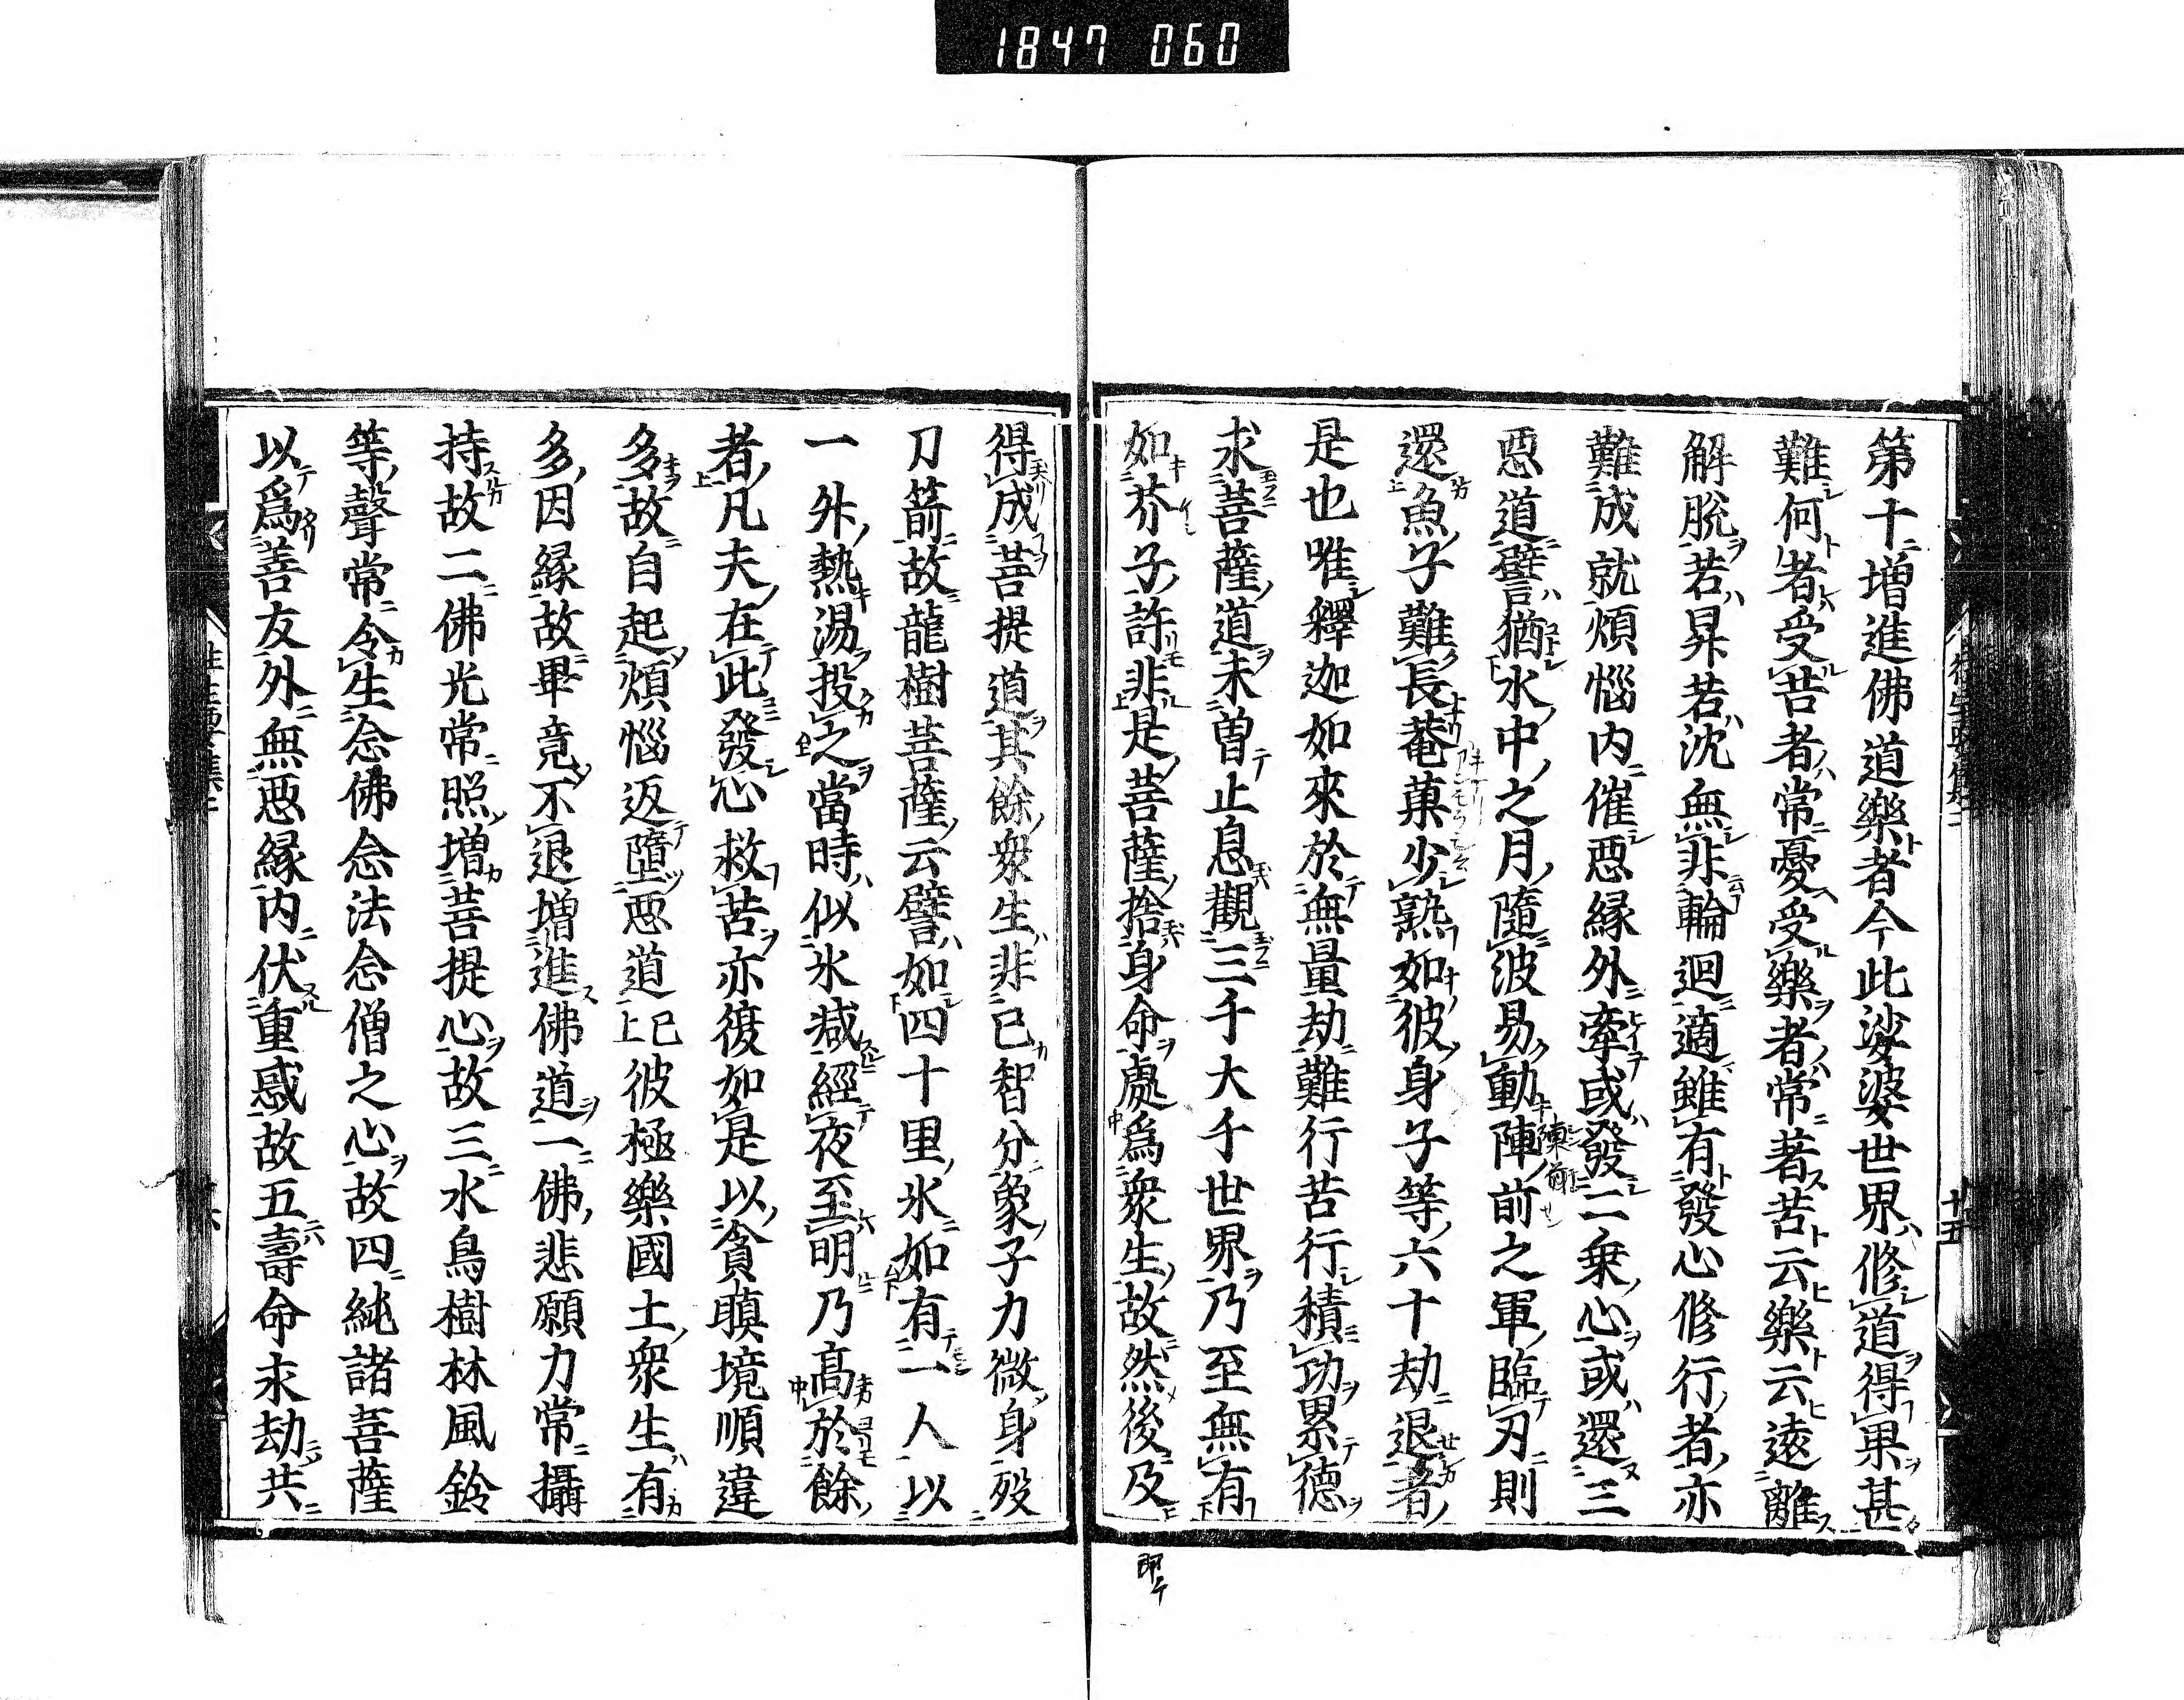 1847 060
第十増進佛道樂者今此娑婆世界修道得果甚
難何者受苦者常憂受樂者常著苦云樂云遠離
解脫若昇若沈無非輪迴適雖有發心修行者亦
難成就煩惱内催惡縁外牽或發二乗心或還三
惡道譬猶水中之月隨波易動陣前之軍臨刃則
還魚子難長菴菓少熟如彼身子等六十劫退者
是也唯釋迦如來於無量劫難行苦行積功累德
求菩薩道未曽止息觀三千大千世界乃至無有
如芥子許非是菩薩捨身命處爲衆生故然後及
得成菩提道其餘衆生非己智分象子力微身歿
刀箭故龍樹菩薩云譬如四十里氷如有一人以
一升熱湯投之當時似氷減經夜至明乃髙於餘
者凡夫在此發心救苦亦復如是以貪瞋境順違
多故自起煩惱返墮惡道已上彼極樂國土衆生有
多因縁故畢竟不退増進佛道一佛悲願力常攝
持故二佛光常照増菩提心故三水鳥樹林風鈴
等聲常令生念佛念法念僧之心故四純諸菩薩
以爲善友外無惡縁内伏重惑故五壽命永劫共